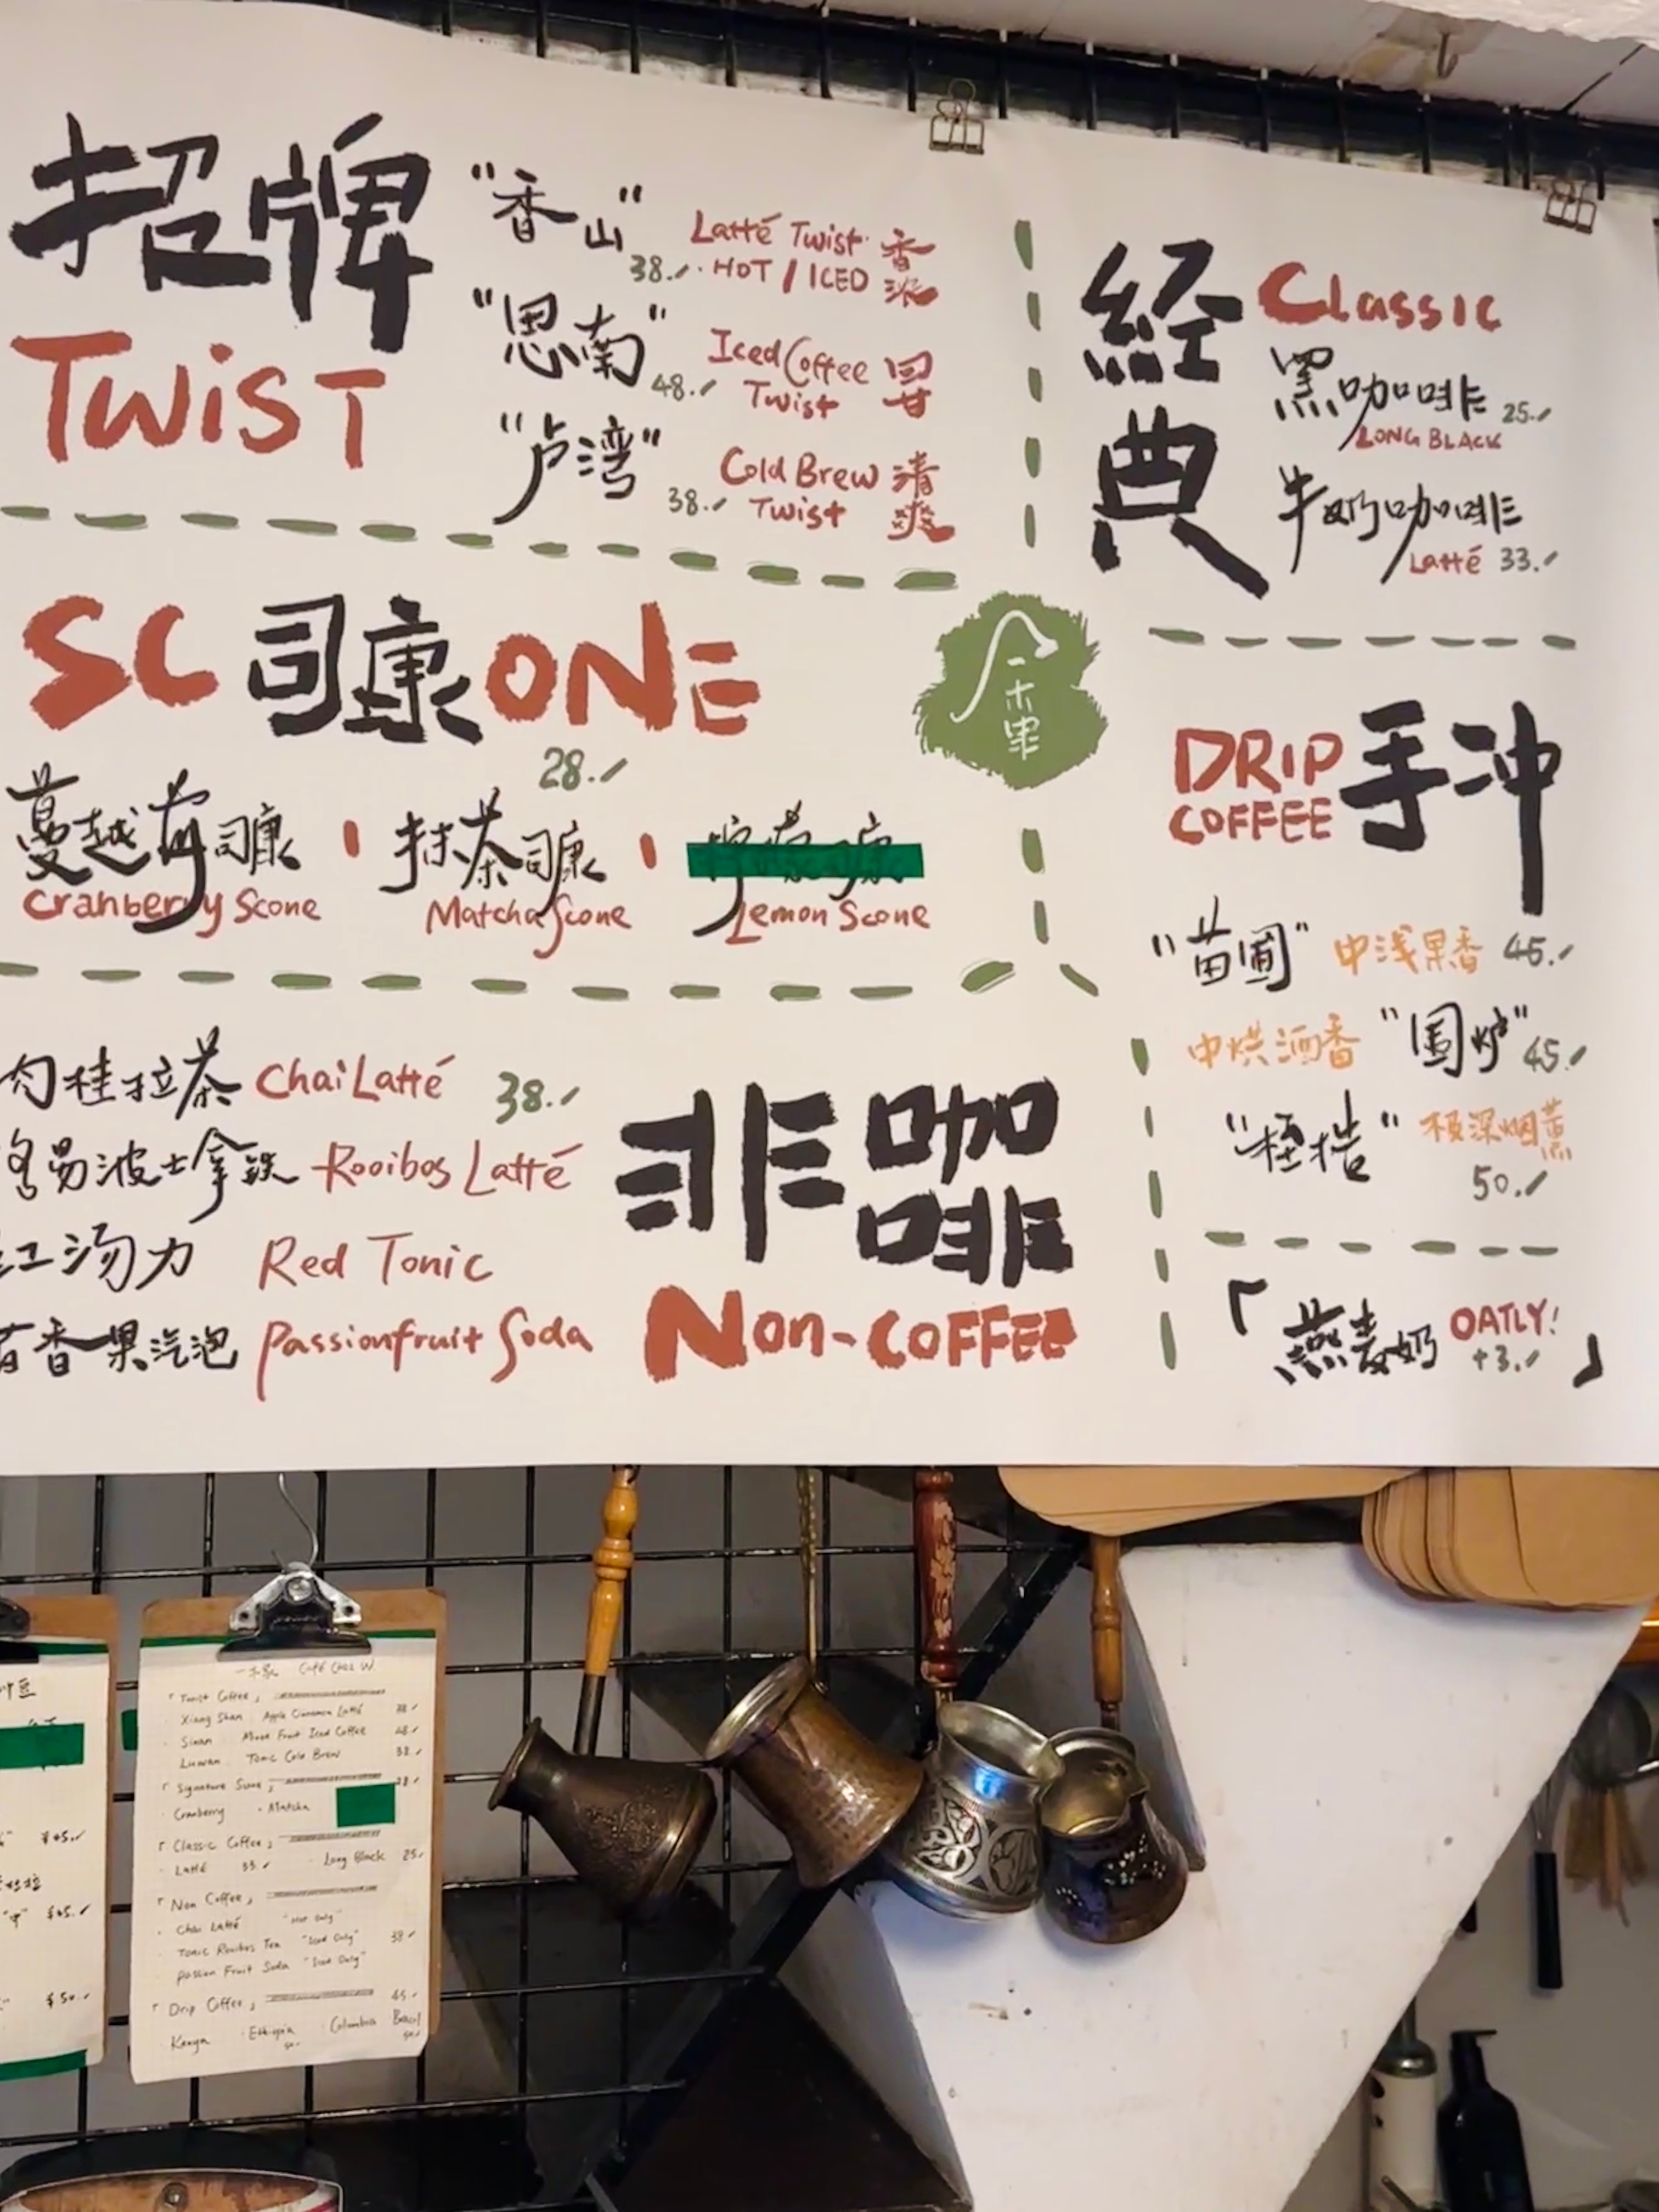 招牌
TWIST
"香山"
38.
Latté Twist
HOT / ICED
香浓
"思南"
48.
Iced Coffee
Twist
"卢湾"
38.
Cold Brew
Twist
清爽
經典
Classic
黑咖啡 25.
LONG BLACK
牛奶咖啡
Latté 33.
SC司康ONE
28.
蔓越莓司康
Cranberry Scone
抹茶司康
Matcha Scone
Lemon Scone
DRIP
COFFEE
手冲
"苗圃" 中浅果香 45.
中烘酒香 "围炉" 45.
极深烟熏
50.
肉桂拉茶 Chai Latté 38.
洛易波士拿铁 Rooibos Latté
红汤力 Red Tonic
百香果汽泡 Passionfruit Soda
非咖啡
Non-COFFEE
「燕麦奶 OATLY! +3.」
Café Chez W.
「Twist Coffee」
Xiang Shan Apple Cinnamon Latté 38
Sinan Mixed Fruit Iced Coffee 48
Luwan Tonic Cold Brew 38
「Signature Scone」 28
· Cranberry · Matcha
「Classic Coffee」
· Latté 33. · Long Black 25.
「Non Coffee」
· Chai Latté "Hot Only"
· Tonic Rooibos Tea "Iced Only" 38
· Passion Fruit Soda "Iced Only"
「Drip Coffee」 45.
Kenya · Ethiopia · Columbia Brazil
¥45.
¥45.
¥50.